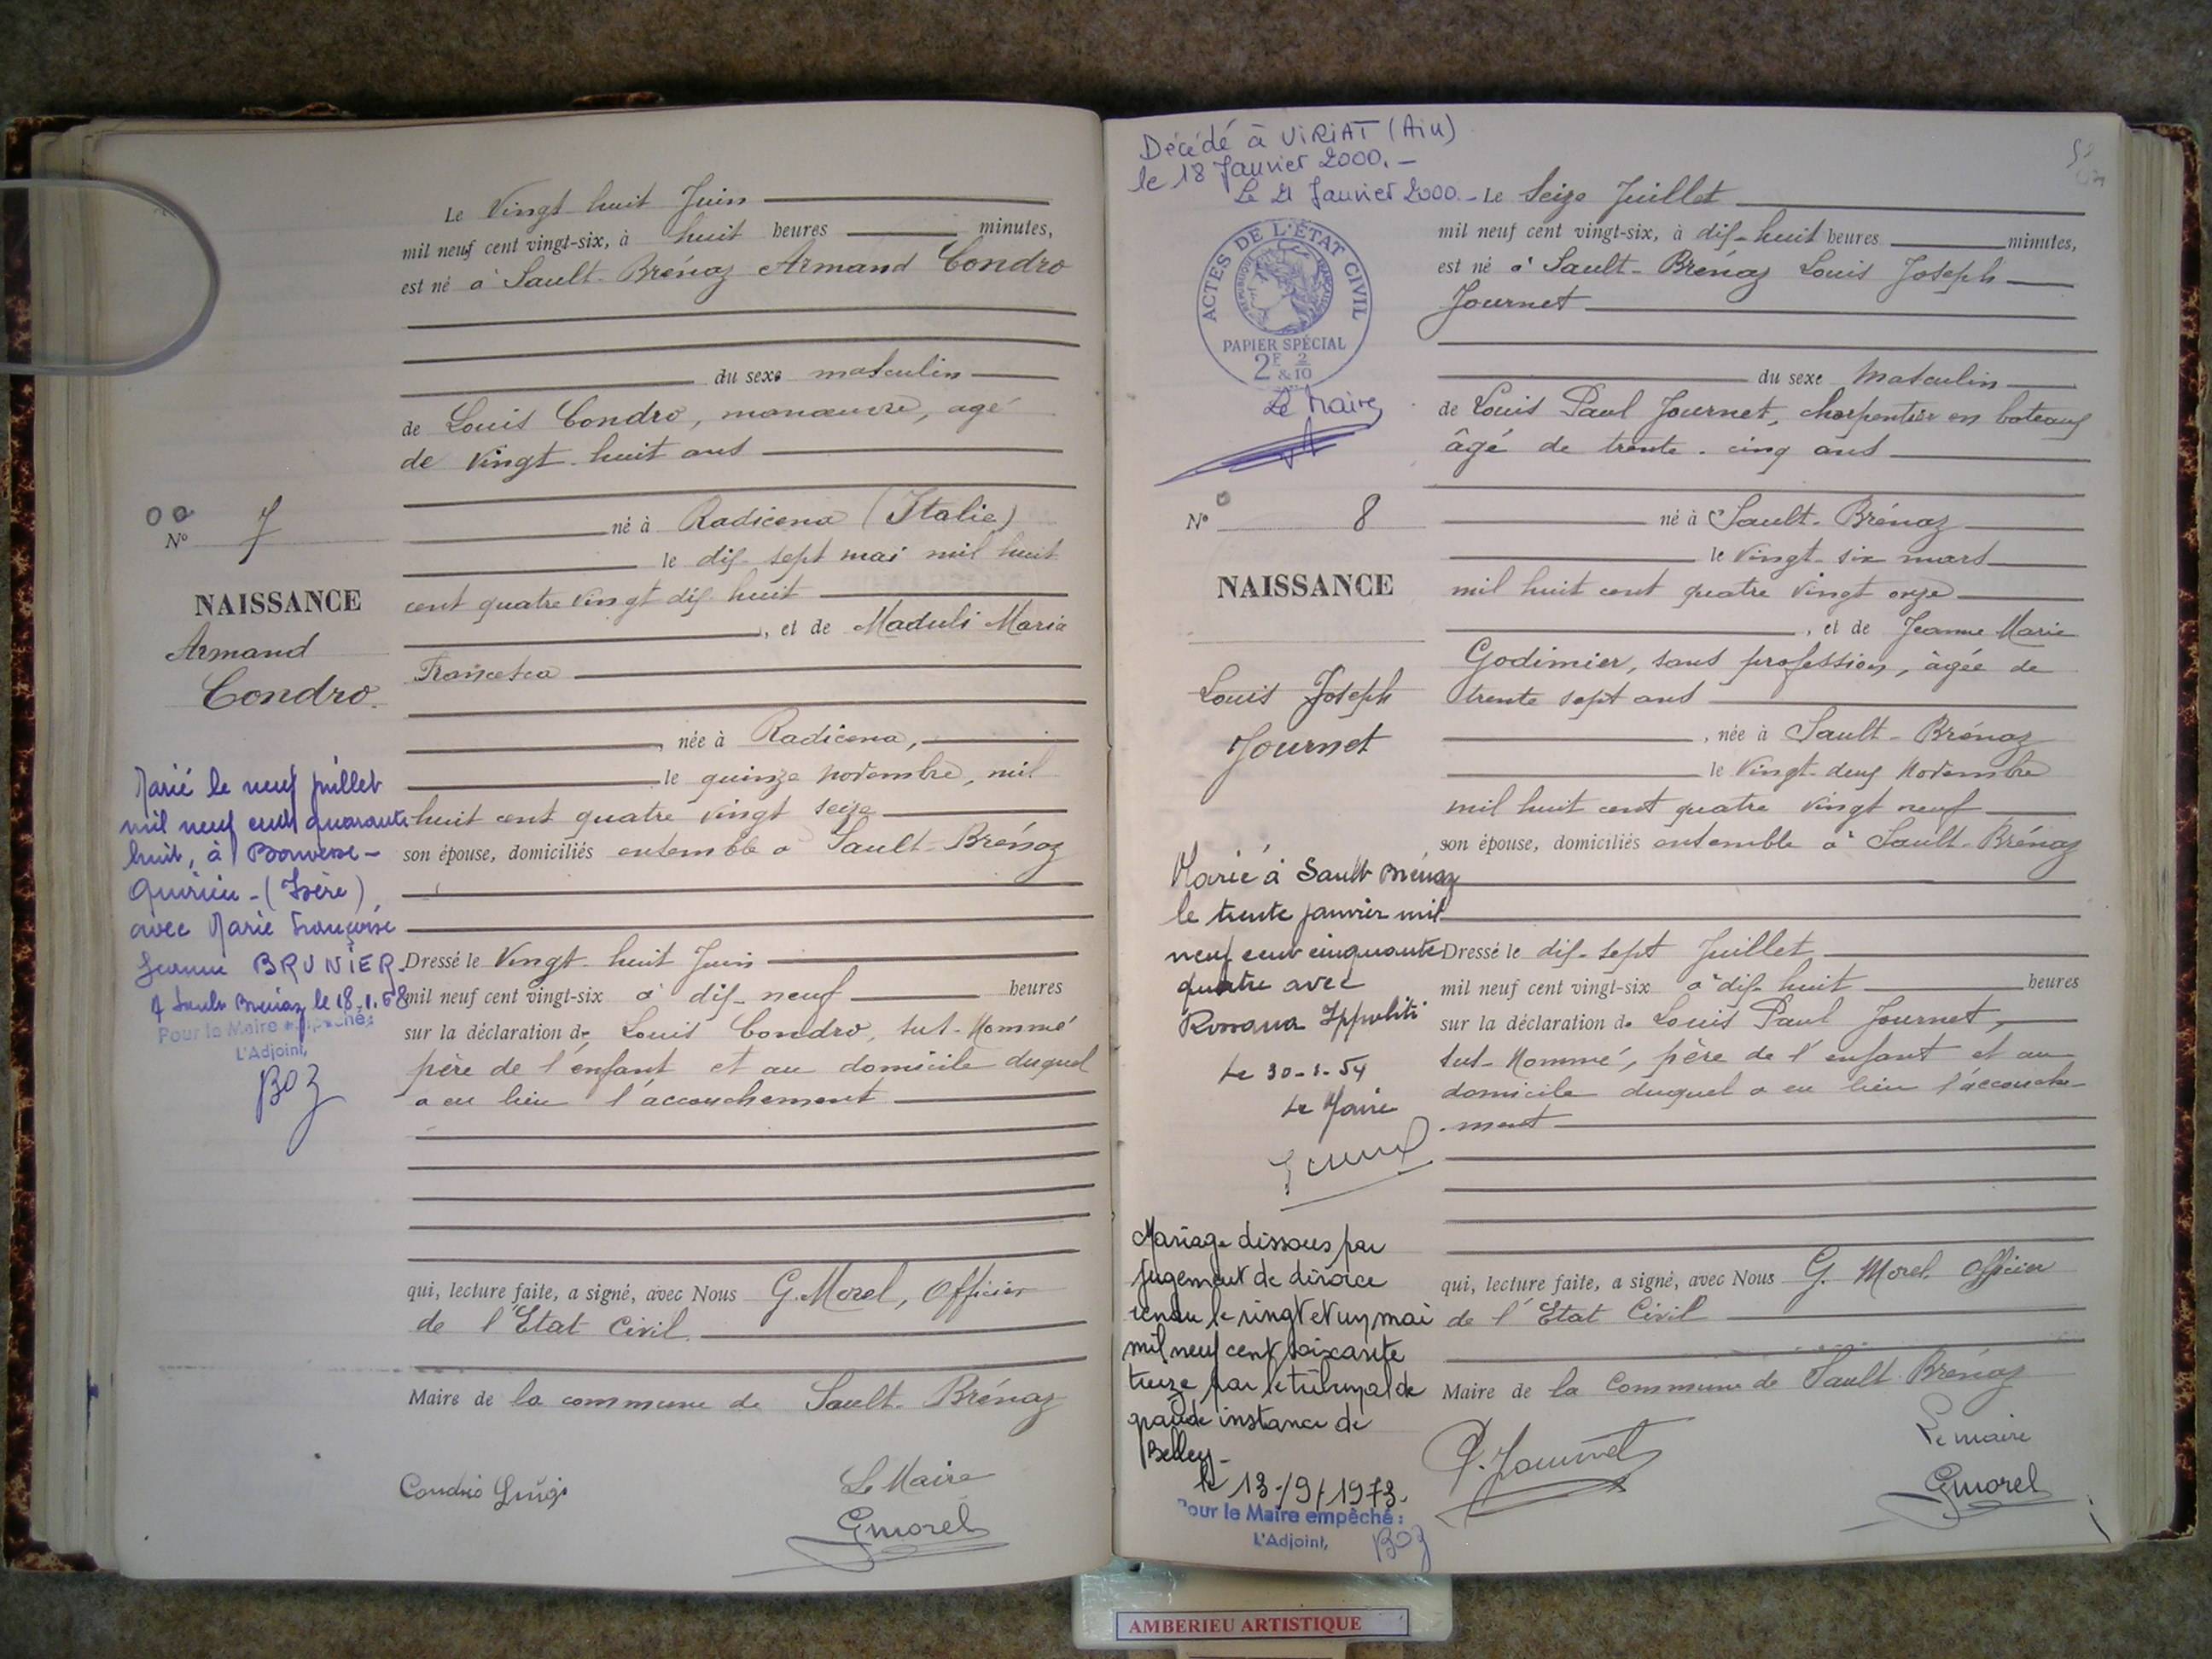 Le Vingt huit Juin
mil neuf cent vingt-six, à huit heures minutes,
est né à Sault-Brénaz Armand Condro
du sexe masculin
de Louis Condro, manœuvre, agé
de vingt-huit ans
né à Radicena (Italie)
le dix-sept mai mil huit
cent quatre vingt dix huit
, et de Maduli Maria
Francesca
, née à Radicena,
le quinze novembre, mil
huit cent quatre vingt seize
son épouse, domiciliés ensemble à Sault-Brénaz
Dressé le Vingt-huit Juin
mil neuf cent vingt-six à dix-neuf heures
sur la déclaration de Louis Condro, sus-Nommé
père de l'enfant et au domicile duquel
a eu lieu l'accouchement
qui, lecture faite, a signé, avec Nous G. Morel, Officier
de l'Etat Civil.
Maire de la commune de Sault-Brénaz
Condrò Luigi
Le Maire
GMorel
Nº 7
NAISSANCE
Armand
Condro.
Marié le neuf juillet
mil neuf cent quarante
huit, à Bouvesse-
Quirieu - (Isère)
avec Marie Françoise
Jeanne BRUNIER.
A Sault Brénaz le 18.1.68
Pour le Maire empêché:
L'Adjoint,
BOZ
Décédé à VIRIAT (Ain)
le 18 Janvier 2000.-
Le 21 Janvier 2000.-
ACTES DE L'ÉTAT CIVIL
RÉPUBLIQUE FRANÇAISE
PAPIER SPÉCIAL
2F & 2/10
Le Maire
Nº 8
NAISSANCE
Louis Joseph
Journet
Marié à Sault Brénaz
le trente janvier mil
neuf cent cinquante
quatre avec
Rossana Ippoliti
Le 30-1-54
Le Maire
Mariage dissous par
jugement de divorce
rendu le vingt et un mai
mil neuf cent soixante
treize par le tribunal de
grande instance de
Belley-
le 13/9/1973.
Pour le Maire empêché:
L'Adjoint, BOZ
Le Seize Juillet
mil neuf cent vingt-six, à dix-huit heures minutes,
est né à Sault-Brénaz Louis Joseph
Journet
du sexe Masculin
de Louis Paul Journet, charpentier en bateaux
âgé de trente-cinq ans
né à Sault-Brénaz
le Vingt-six mars
mil huit cent quatre vingt onze
, et de Jeanne Marie
Godimier, sans profession, âgée de
trente sept ans
, née à Sault-Brénaz
le Vingt-deux Novembre
mil huit cent quatre vingt neuf
son épouse, domiciliés ensemble à Sault-Brénaz
Dressé le dix-sept Juillet
mil neuf cent vingt-six à dix-huit heures
sur la déclaration de Louis Paul Journet,
sus-Nommé, père de l'enfant et au
domicile duquel a eu lieu l'accouche-
-ment
qui, lecture faite, a signé, avec Nous G. Morel, Officier
de l'Etat Civil
Maire de la Commune de Sault-Brénaz
P. Journet
Le maire
GMorel
AMBERIEU ARTISTIQUE